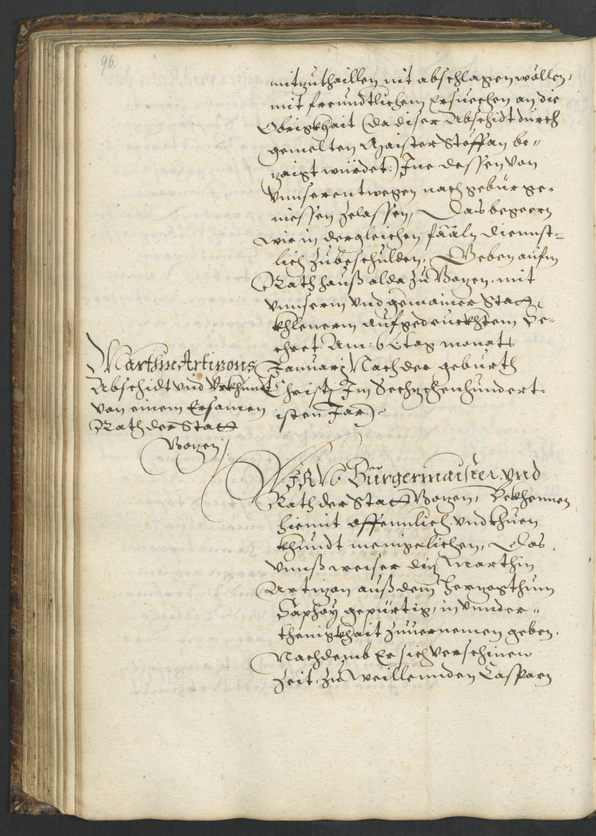 96.
mitzuthaillen nit abschlagen wöllen,
mit freundtlichem Ersuechen an die
Obrigkhait (da diser Abschidt durch
gemelten Maister Steffan be-
zaigt würdet:) Ine dessen von
vnnserentwegen nach gebür ge-
niessen zelassen, Das begeern
wir in dergleichen fääln diennst-
lich zubeschulden, Geben aufm
Rathhauß alda zu Bozen, mit
vnnserm vnd gemainer Statt
khlenerm aufgedruckhtem Se-
cret Am: 6 tag monats
Januarj Nach der geburth
Christj Im Sechzehenhundert-
isten Jar
Marthin Artisons
Abschidt vnd Vrkhundt
von einem Ersamen
Rath der Statt
Bozen
WIR N: Bürgermaister vnd
Rath der Statt Bozen, Bekhennen
hiemit offennlich vnd thuen
khundt menigelichen, Das
vnnß weiser diß Marthin
Artison auß dem Herzogthum
Saphoy gepürtig, in vnnder-
thenigkhait zuuernemen geben,
Nachdemb Er sich verschinen
Zeit, zu Weillennden Casparn